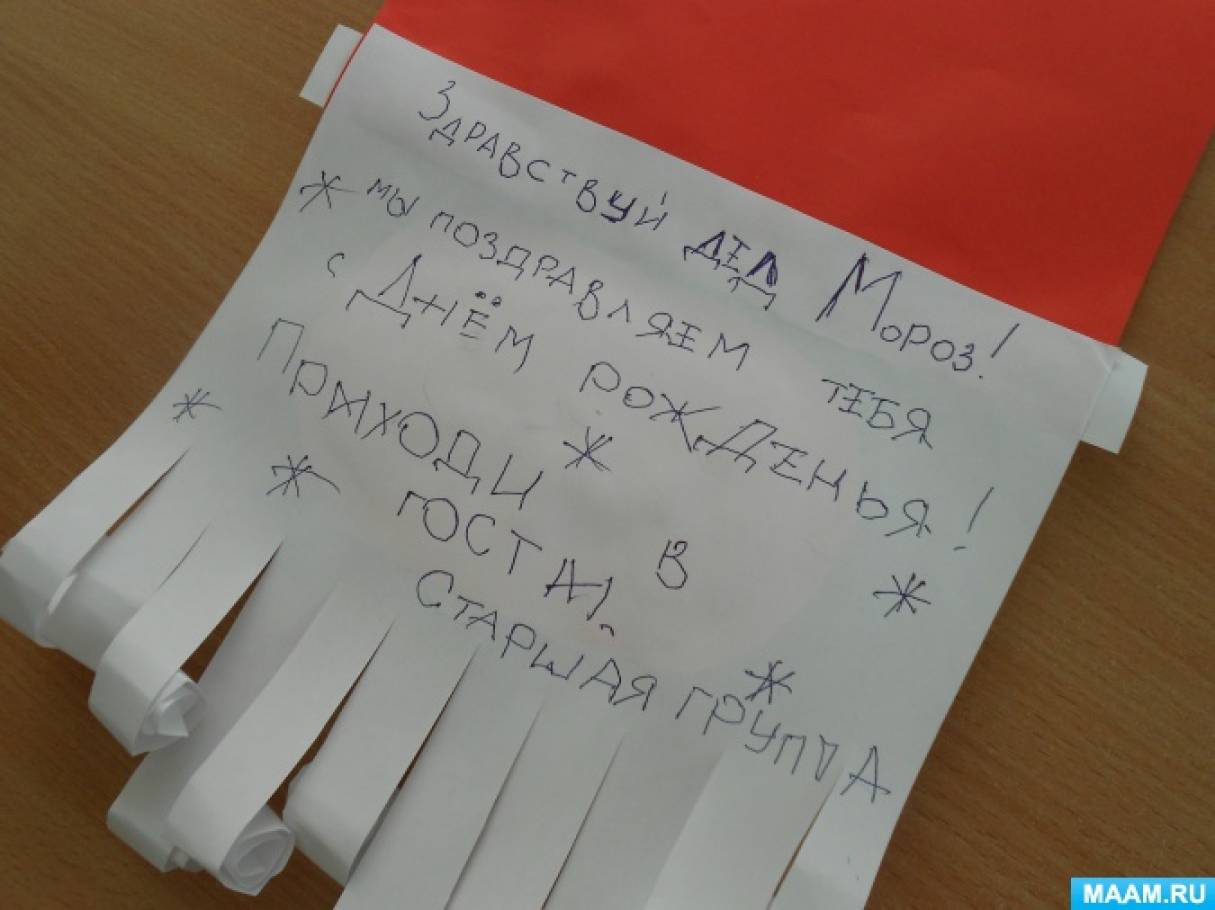 Здравствуй дед Мороз!
мы поздравляем тебя
с Днём рожденья!
Приходи в
гости.
Старшая группа
MAAM.RU